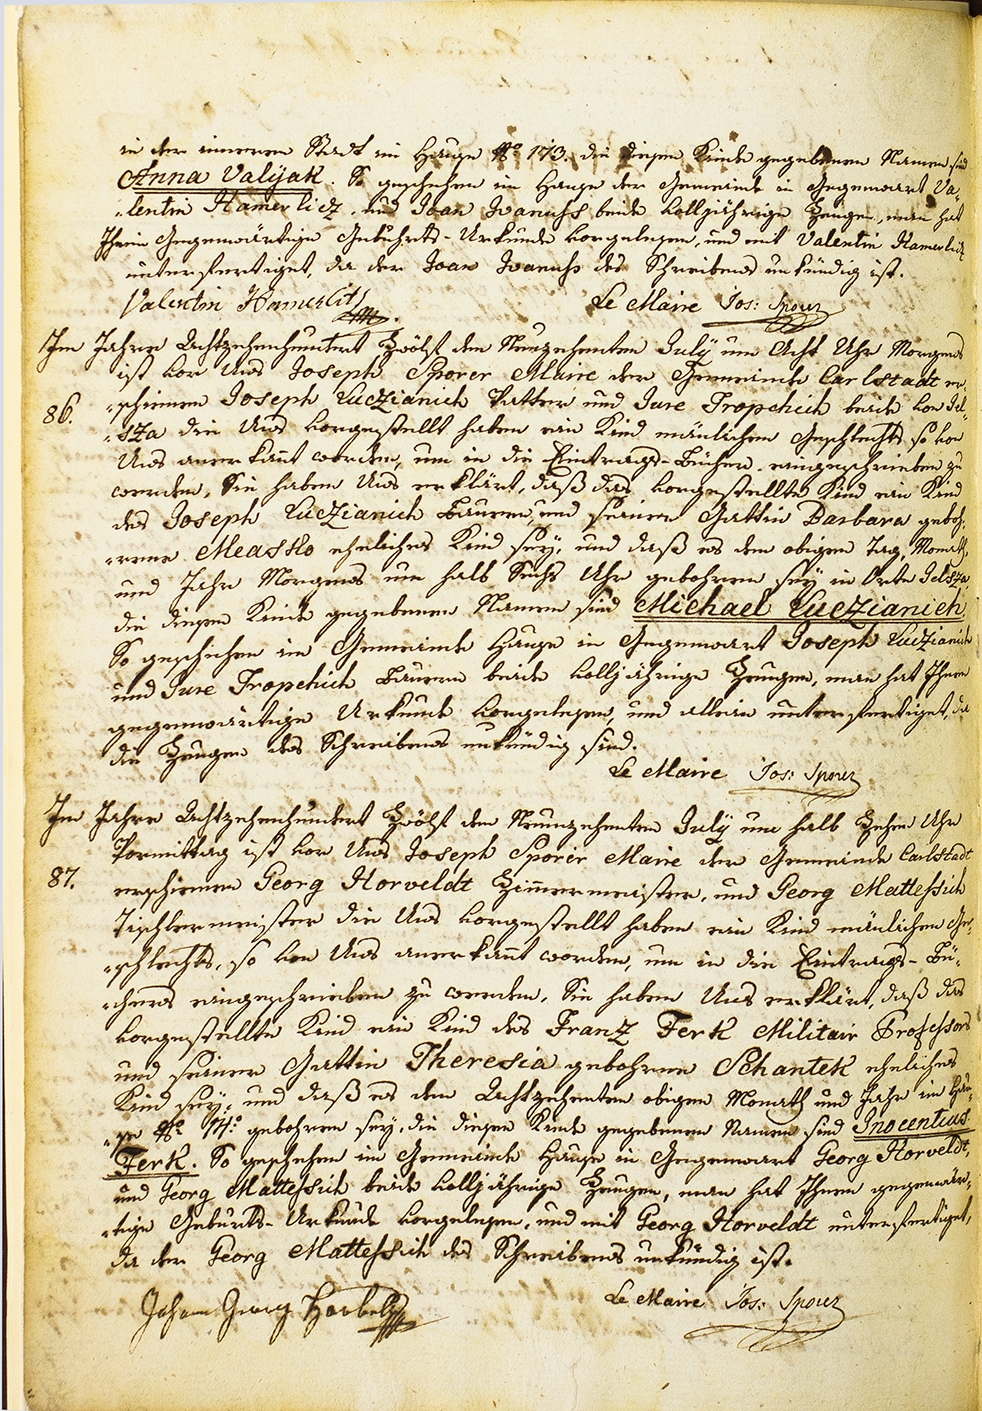 in der inneren Stadt im Hause No 173. die diesem Kinde gegebenen Namen sind
Anna Valijak. So geschehen im Hause der Gemeinde in Gegenwart Va„
„lentin Hamerlicz, und Ivan Ivanuss beide volljährige Zeugen, man hat
Ihnen Gegenwärtige Geburts-Urkunde vorgelesen, und mit Valentin Hamerlicz
unterfertiget, da der Ivan Ivanuss des Schreibens unkündig ist.
Valentin Hamerlitz
Le Maire Jos: Sporer
Im Jahre Achtzehenhundert Zwölf den Neunzehenten July um Acht Uhr Morgens
ist vor Uns Joseph Sporer Maire der Gemeinde Carlstadt er„
86.
„schienen Joseph Luczianich Vatter und Jure Tropchich beide von Jel„
„sza die Uns vorgestellt haben ein Kind mänlichen Geschlechts so von
Uns anerkant worden, um in die Eintrags-Bücher eingeschrieben zu
werden, Sie haben Uns erklärt, daß das vorgestellte Kind ein Kind
des Joseph Luczianich Bauern, und seiner Gattin Barbara geboh„
„rene Meassko eheliches Kind sey, und daß es dem obigen Tag, Monath,
und Jahr Morgens um halb Sechs Uhr gebohren sey in Orte Jelsza
die diesem Kinde gegebenen Namen sind Michael Luczianich
So geschehen im Gemeinde Hause in Gegenwart Joseph Luczianich
und Jure Tropchich Bauern beide volljährige Zeugen, man hat Ihnen
gegenwärtige Urkunde vorgelesen, und allein unterfertiget, da
die Zeugen des Schreibens unkündig sind.
Le Maire Jos: Sporer
Im Jahre Achtzehenhundert Zwölf den Neunzehenten July um halb Zehn Uhr
Vormittag ist vor Uns Joseph Sporer Maire der Gemeinde Carlstadt
87.
erschienen Georg Horveldt Zimmermeister, und Georg Mattessich
Tischlermeister die Uns vorgestellt haben ein Kind mänlichen Ge„
„schlechts, so von Uns anerkant worden, um in die Eintrags-Bü„
„chers eingeschrieben zu werden, Sie haben Uns erklärt, daß das
vorgestellte Kind ein Kind des Franz Ferk Militair Professors
und seiner Gattin Theresia gebohrne Schantek eheliches
Kind sey, und daß es den Achtzehenten obigen Monath und Jahr im Hau„
„se No 14: gebohren sey, die diesem Kinde gegebenen Namen sind Inocentius
Ferk. So geschehen im Gemeinde Hause in Gegenwart Georg Horveldt,
und Georg Mattessich beide volljährige Zeugen, man hat Ihnen gegenwär„
„tige Geburts-Urkunde vorgelesen, und mit Georg Horveldt unterfertiget,
da der Georg Mattessich des Schreibens unkündig ist.
Johann Georg
Le Maire Jos: Sporer